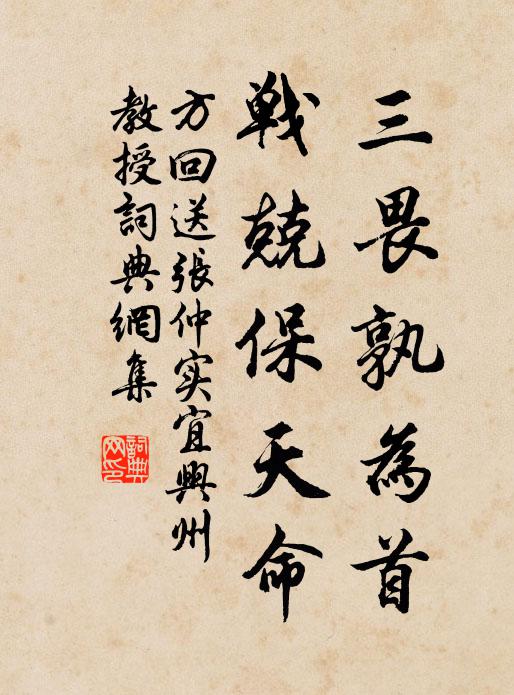 三畏孰為首
戦兢保天命
方回送張仲实宜興州
教授詞典網集
詞典网印